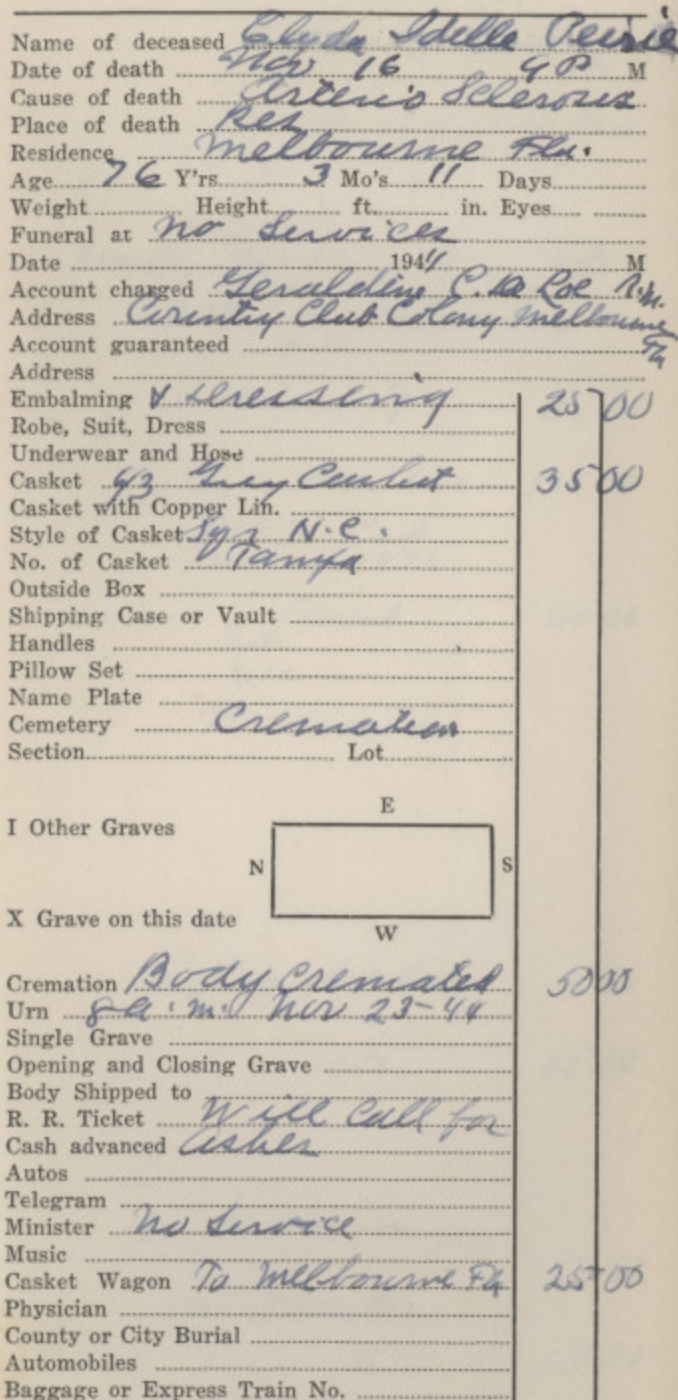 Name of deceased Clyda Idelle Peirie
Date of death Nov 16 4 P M
Cause of death Arterio Sclerosis
Place of death Res
Residence Melbourne Fla.
Age 76 Y'rs. 3 Mo's. 11 Days
Weight Height ft. in. Eyes
Funeral at No Services
Date 1944 M
Account charged Geraldine C.
Address Country Club Colony Melbourne Fla
Account guaranteed
Address
Embalming & Dressing 25 00
Robe, Suit, Dress
Underwear and Hose
Casket 6/3 Grey Casket 35 00
Casket with Copper Lin.
Style of Casket N.C.
No. of Casket Tampa
Outside Box
Shipping Case or Vault
Handles
Pillow Set
Name Plate
Cemetery Cremation
Section Lot
E
I Other Graves
N S
X Grave on this date
W
Cremation Body Cremated 50 00
Urn 8 a.m. Nov 23-44
Single Grave
Opening and Closing Grave
Body Shipped to
R. R. Ticket Will Call for
Cash advanced ashes
Autos
Telegram
Minister No Service
Music
Casket Wagon To Melbourne Fla 25 00
Physician
County or City Burial
Automobiles
Baggage or Express Train No.